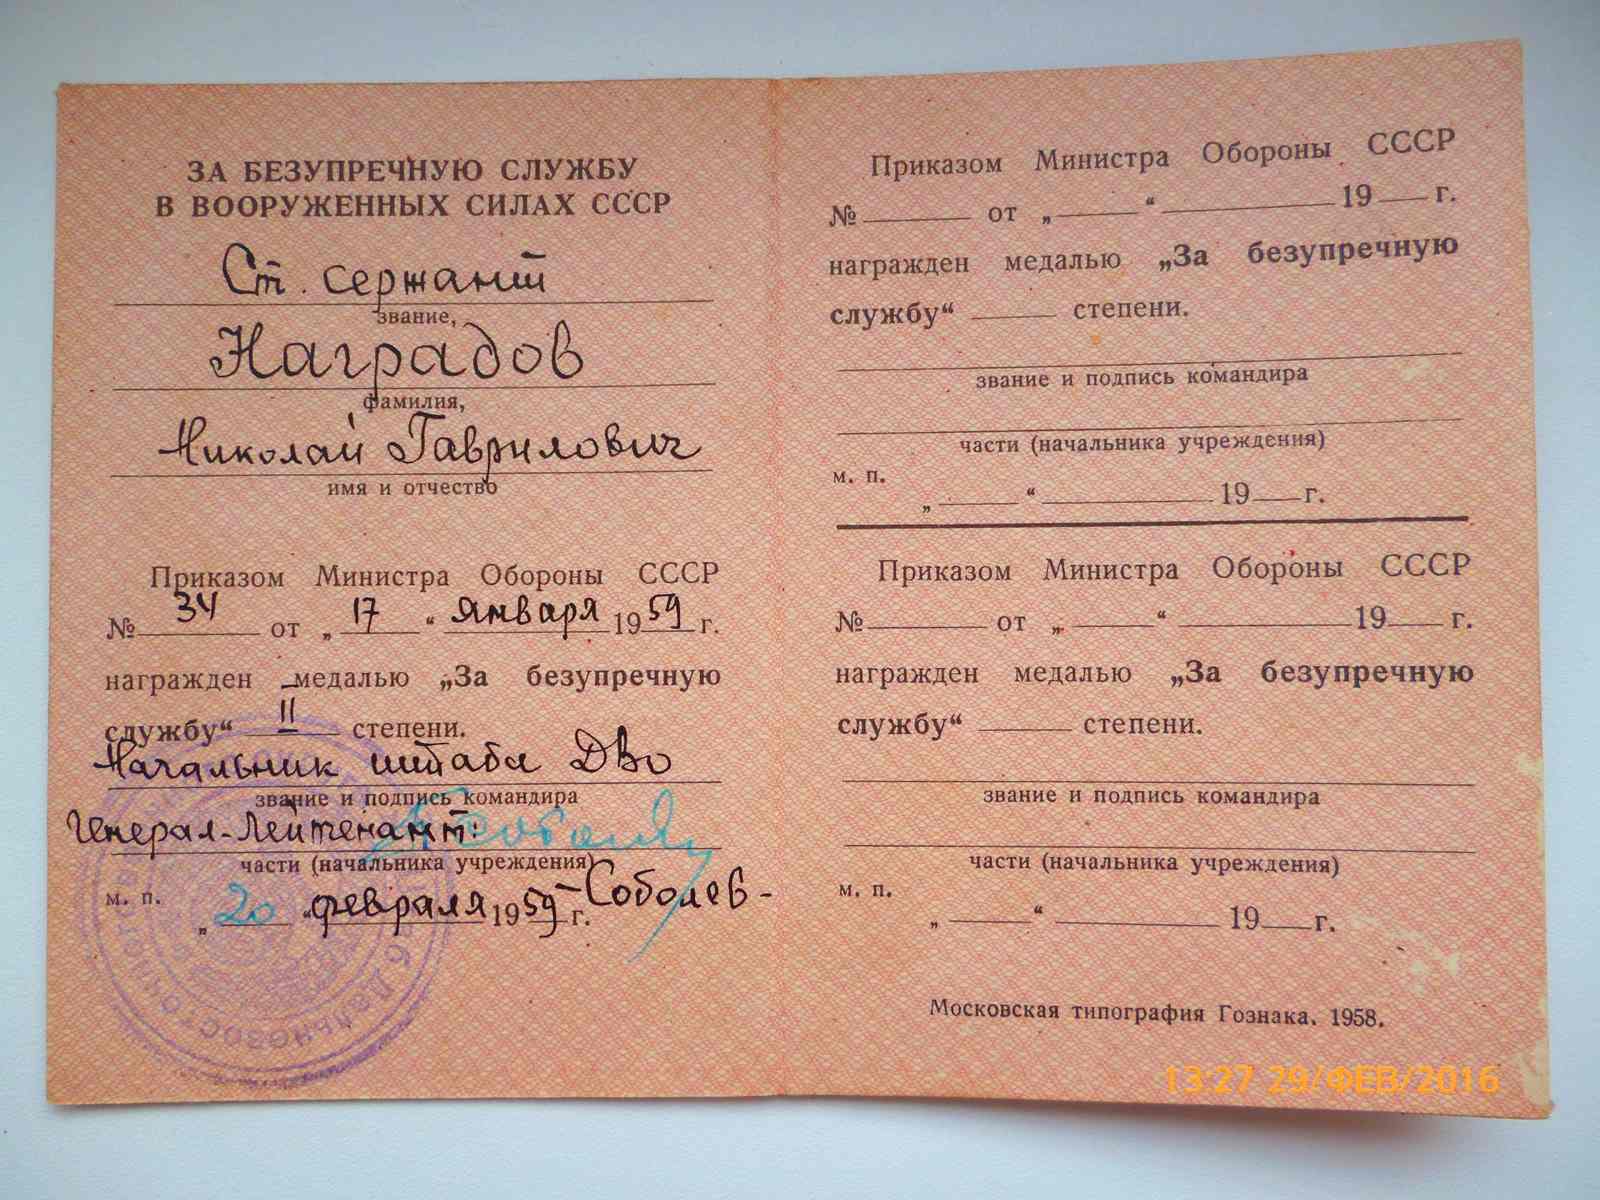 ЗА БЕЗУПРЕЧНУЮ СЛУЖБУ
В ВООРУЖЕННЫХ СИЛАХ СССР
Ст. сержант
звание,
Наградов
фамилия,
Николай Гаврилович
имя и отчество
Приказом Министра Обороны СССР
№ 34 от „ 17 “ января 1959 г.
награжден медалью „За безупречную
службу“ II степени.
Начальник штаба ДВО
звание и подпись командира
Генерал-Лейтенант:
части (начальника учреждения)
-Соболев-
м. п. „ 20 “ февраля 1959 г.
Дальневосточного
Приказом Министра Обороны СССР
№ от „ “ 19 г.
награжден медалью „За безупречную
службу“ степени.
звание и подпись командира
части (начальника учреждения)
м. п.
„ “ 19 г.
Приказом Министра Обороны СССР
№ от „ “ 19 г.
награжден медалью „За безупречную
службу“ степени.
звание и подпись командира
части (начальника учреждения)
м. п.
„ “ 19 г.
Московская типография Гознака. 1958.
13:27 29/ФЕВ/2016